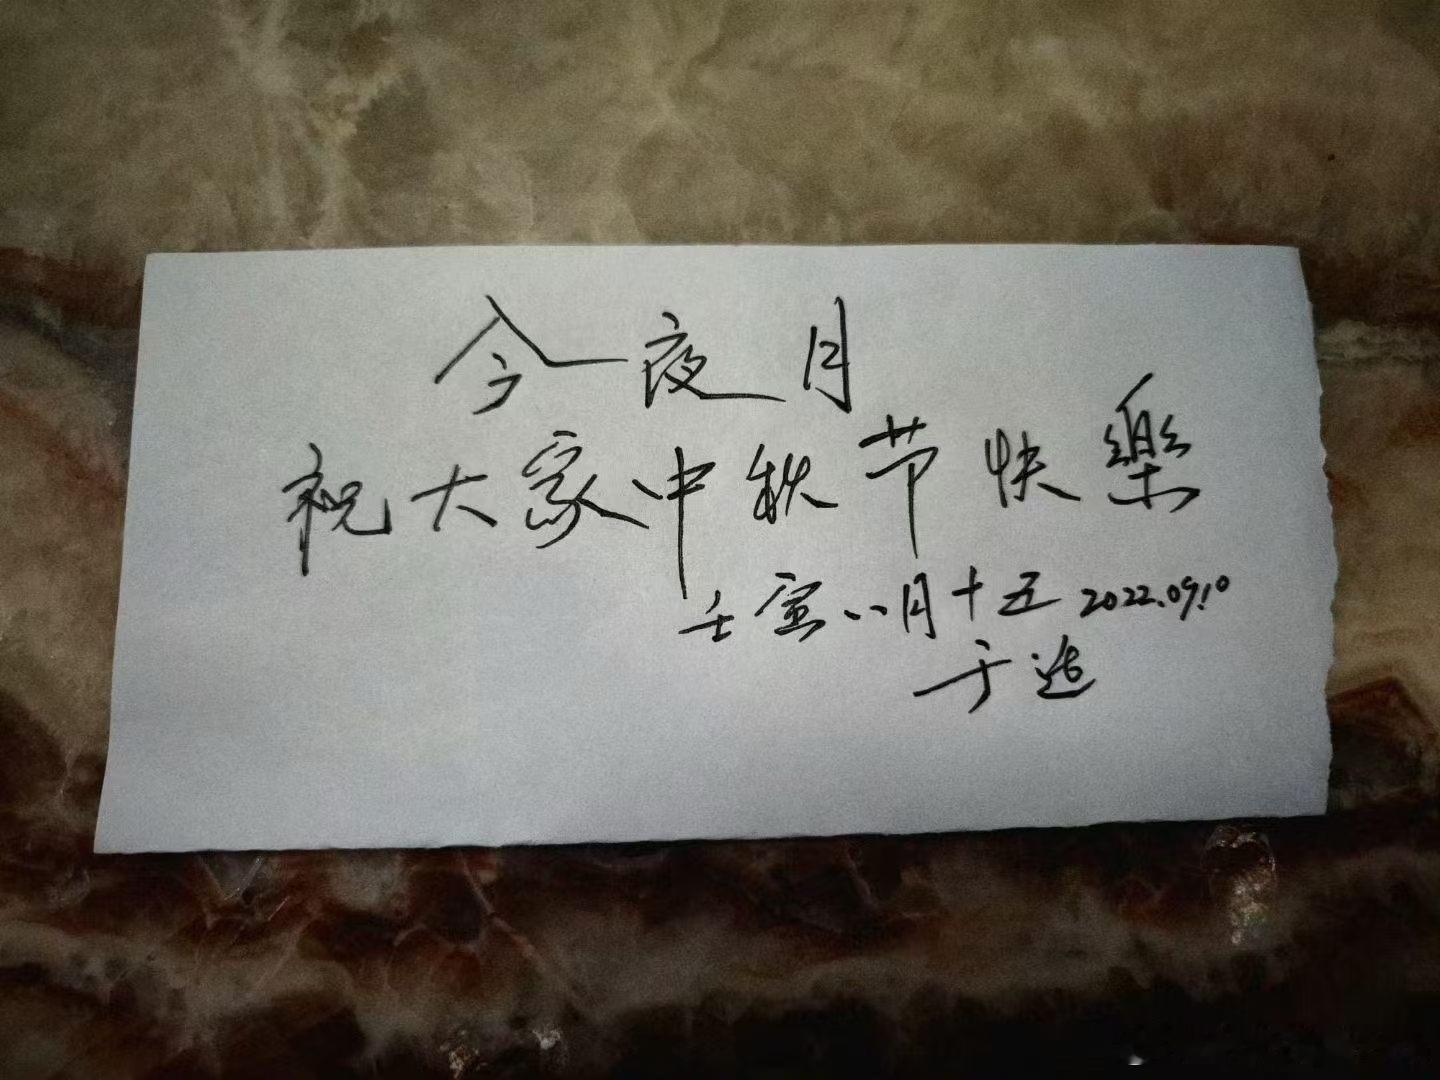 今夜月
祝大家中秋节快樂
壬寅八月十五 2022.09.10
于造